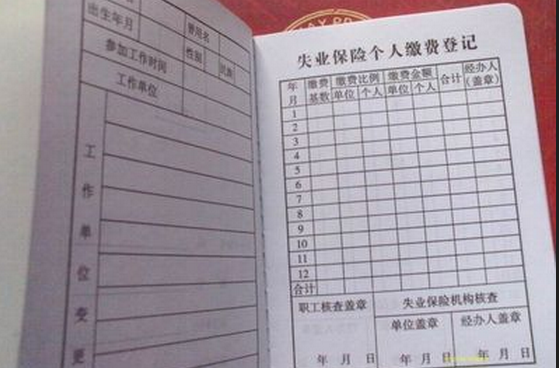 出生年月 曾用名
参加工作时间 性别 民族
工作单位
工作单位变更
失业保险个人缴费登记
年月 缴费基数 缴费比例 缴费金额 合计 经办人(盖章)
单位 个人 单位 个人
1
2
3
4
5
6
7
8
9
10
11
12
合计
职工核查盖章 失业保险机构核查
单位盖章 经办人盖章
年 月 日 年 月 日 年 月 日